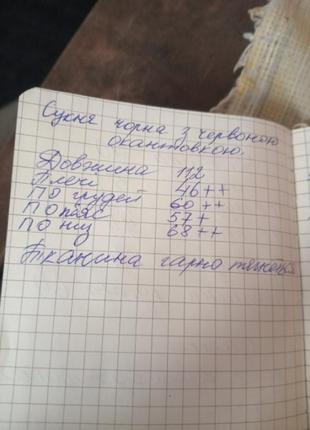 Сукня чорна з червоною
окантовкою.
Довжина 112
Плечі 46++
По грудей 60++
По пояс 57+
По низ 68++
Тканина гарно тягнеться